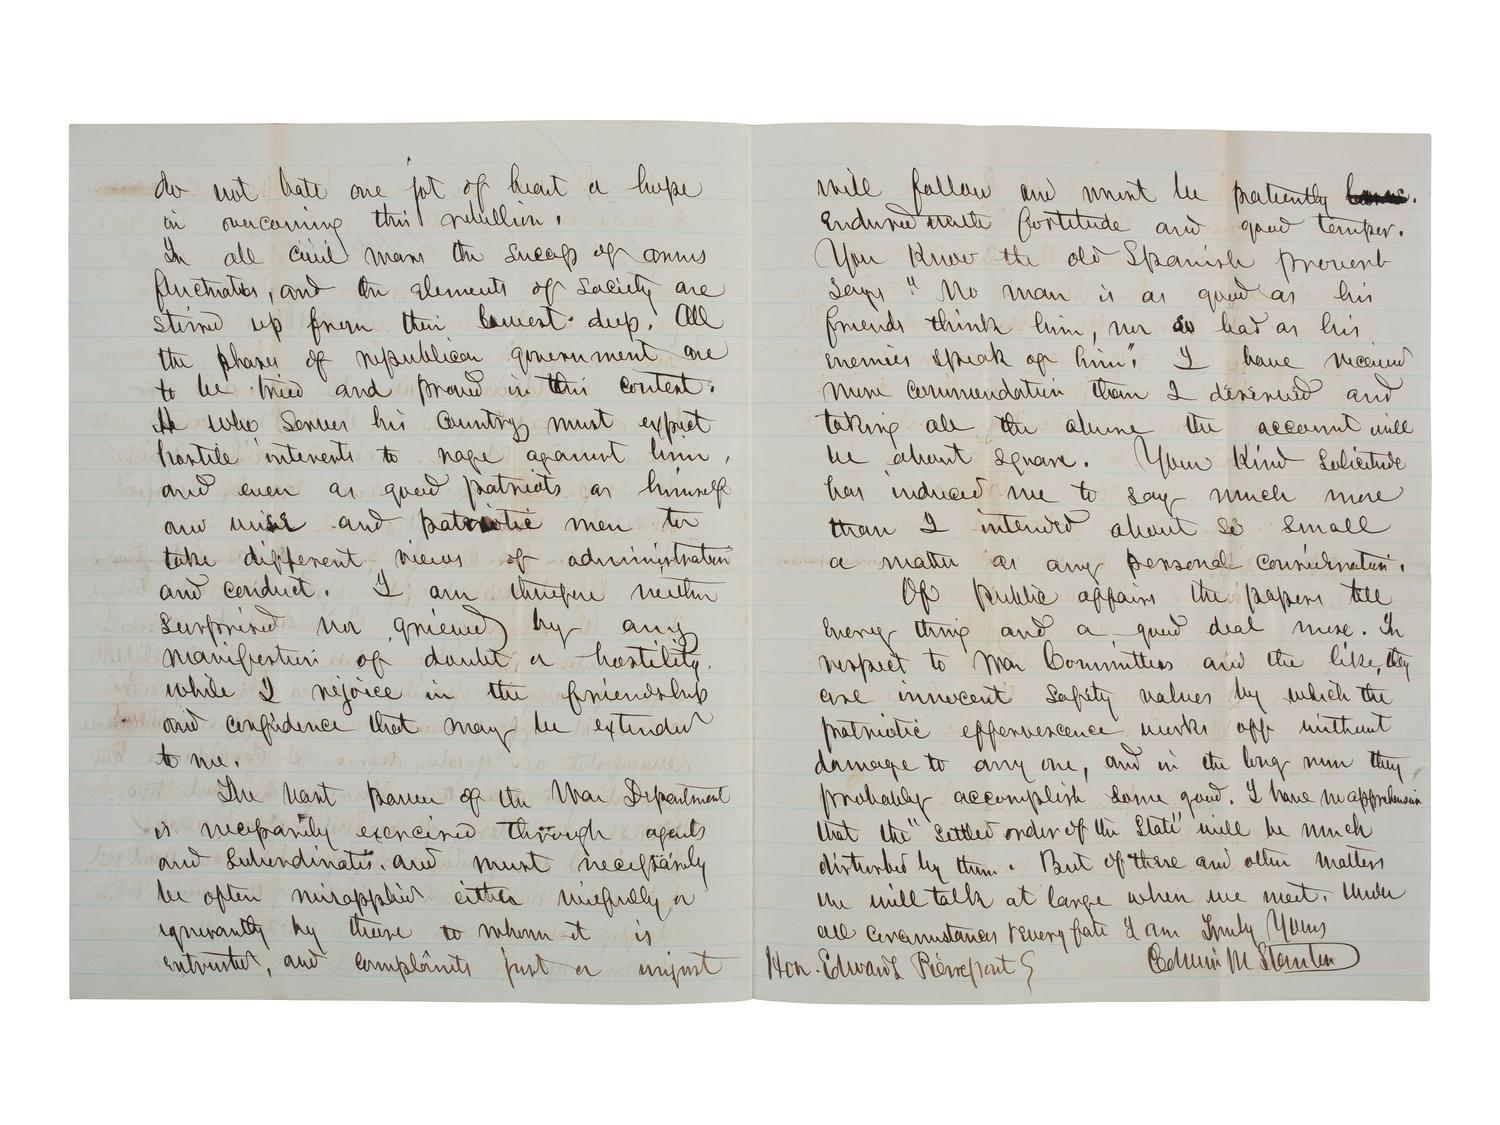 do not bate one jot of heart or hope
in overcoming this rebellion.
In all civil wars the success of arms
fluctuates, and the elements of society are
stirred up from their lowest deep. All
the phases of republican government are
to be tried and proved in this contest.
He who serves his Country must expect
hostile interests to rage against him,
and even as good patriots as himself
and wise and patriotic men to
take different views of administration
and conduct. I am therefore neither
surprised nor grieved by any
manifestation of doubt or hostility,
while I rejoice in the friendship
and confidence that may be extended
to me.
The vast power of the War Department
is necessarily exercised through agents
and subordinates. and must necessarily
be often misapplied either wilfully or
ignorantly by those to whom it is
entrusted, and complaints just or unjust
will follow and must be patiently
endured with fortitude and good temper.
You Know the old Spanish proverb
says "No man is as good as his
friends think him, nor so bad as his
enemies speak of him". I have received
more commendation than I deserved and
taking all the abuse the account will
be about square. Your Kind solicitude
has induced me to say much more
than I intended about so small
a matter as any personal consideration.
Of public affairs the papers tell
every thing and a good deal more. In
respect to War Committees and the like, they
are innocent safety valves by which the
patriotic effervescence works off without
damage to any one, and in the long run they
probably accomplish some good. I have no apprehension
that the "settled order of the State" will be much
disturbed by them. But of these and other matters
we will talk at large when we meet. Under
all circumstances & every fate I am Truly Yours
Hon. Edwards Pierrepont
Edwin M Stanton